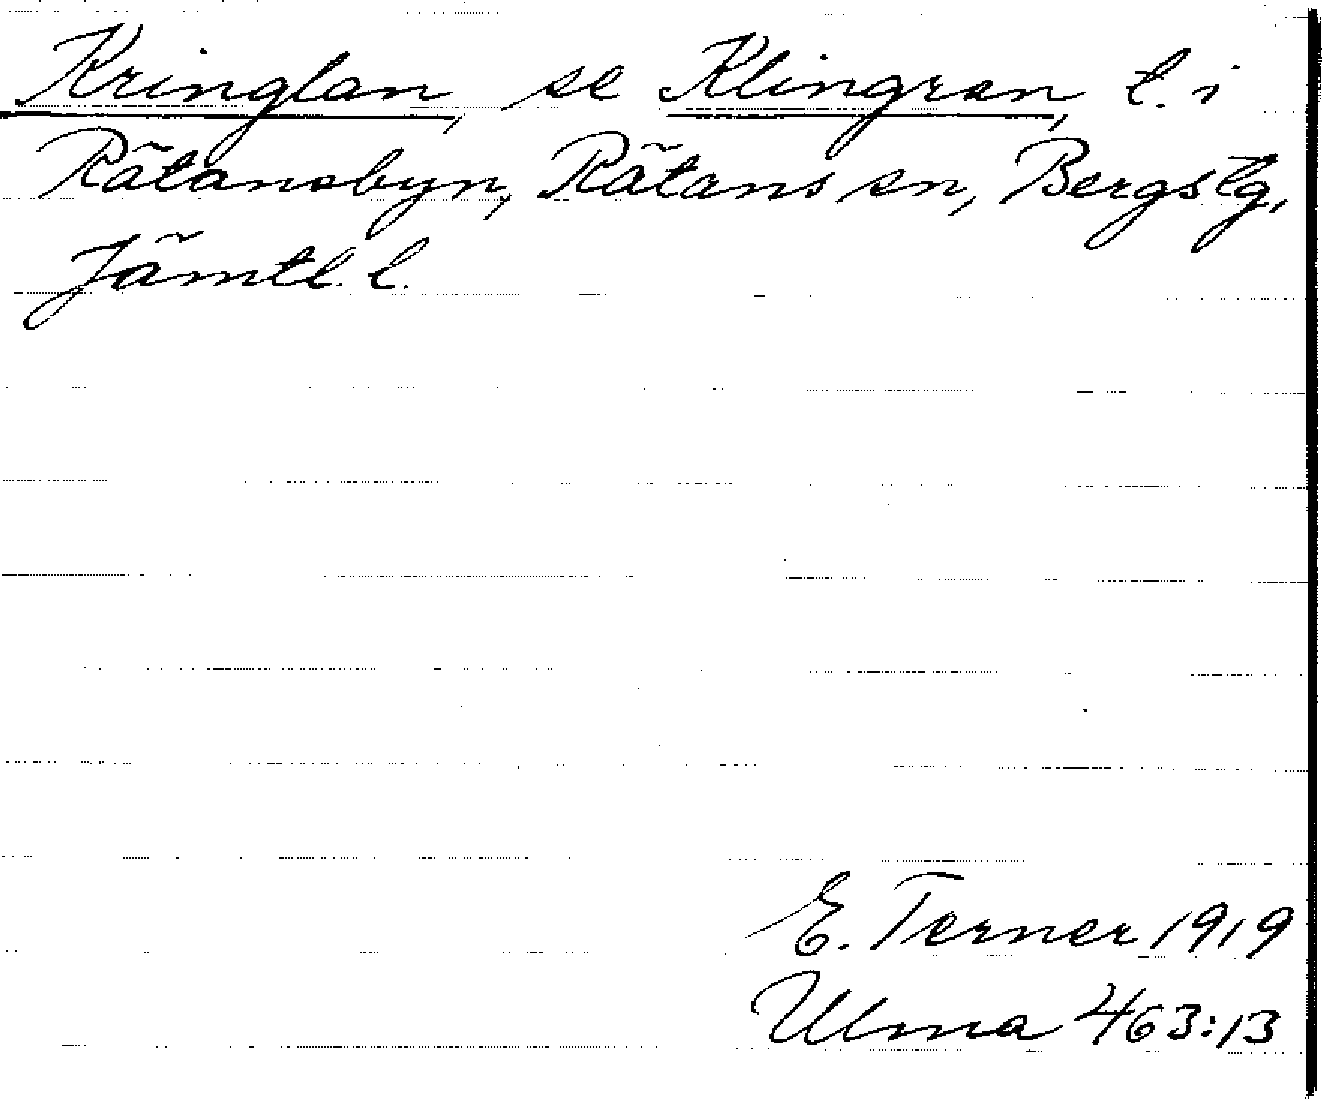 Kringlan, se Klingran, l. i
Rätansbyn, Rätans sn, Bergs tg,
Jämtl. l.
E. Terner 1919
Ulma 463:13